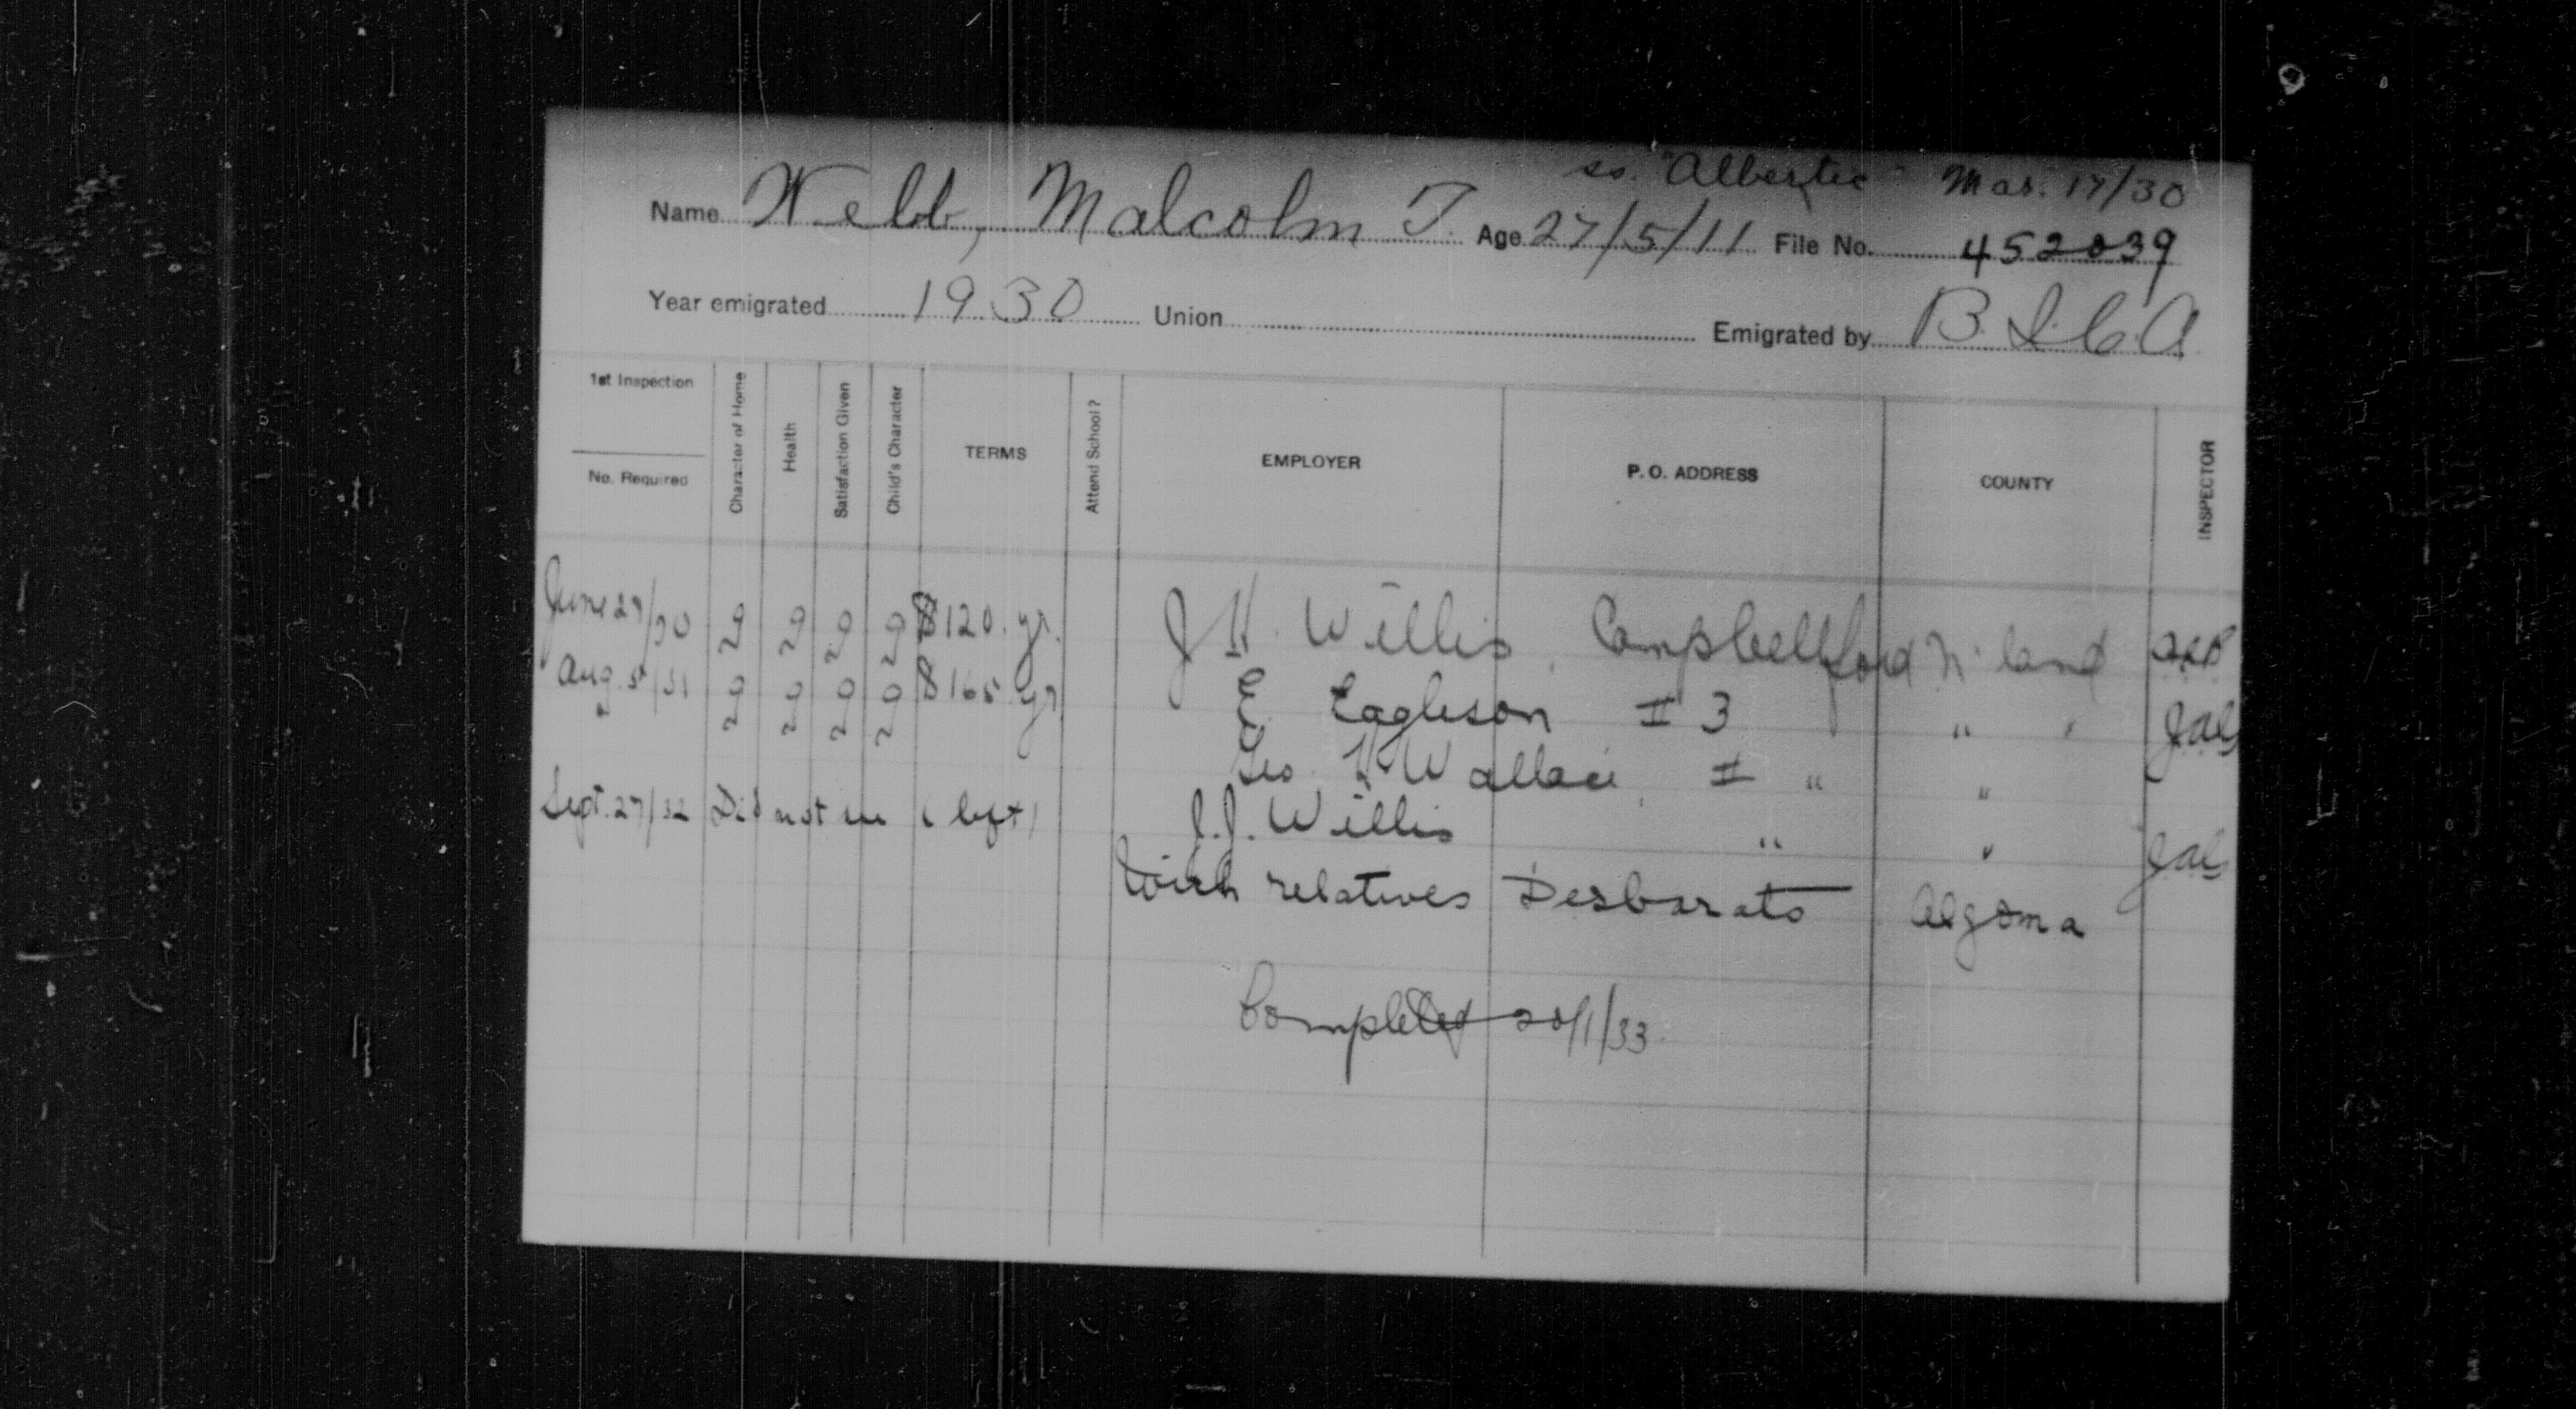 ss. "Albertic" Mar. 17/30
Name Webb, Malcolm T. Age 27/5/11 File No. 452039
Year emigrated 1930 Union Emigrated by B.I.C.A.
1st Inspection
No. Required
Character of Home
Health
Satisfaction Given
Child's Character
TERMS
Attend School?
EMPLOYER
P. O. ADDRESS
COUNTY
INSPECTOR
June 27/30 g g g g $120. yr. J H. Willis, Campbellford N'land
Aug. 5/31 g g g g $165 yr E. Eagleson # 3 " "
Geo. H. Wallace, # " "
Sept. 27/32 Did not see (left) J.J. Willis " "
With relatives Desbarats Algoma
Completed 20/1/33